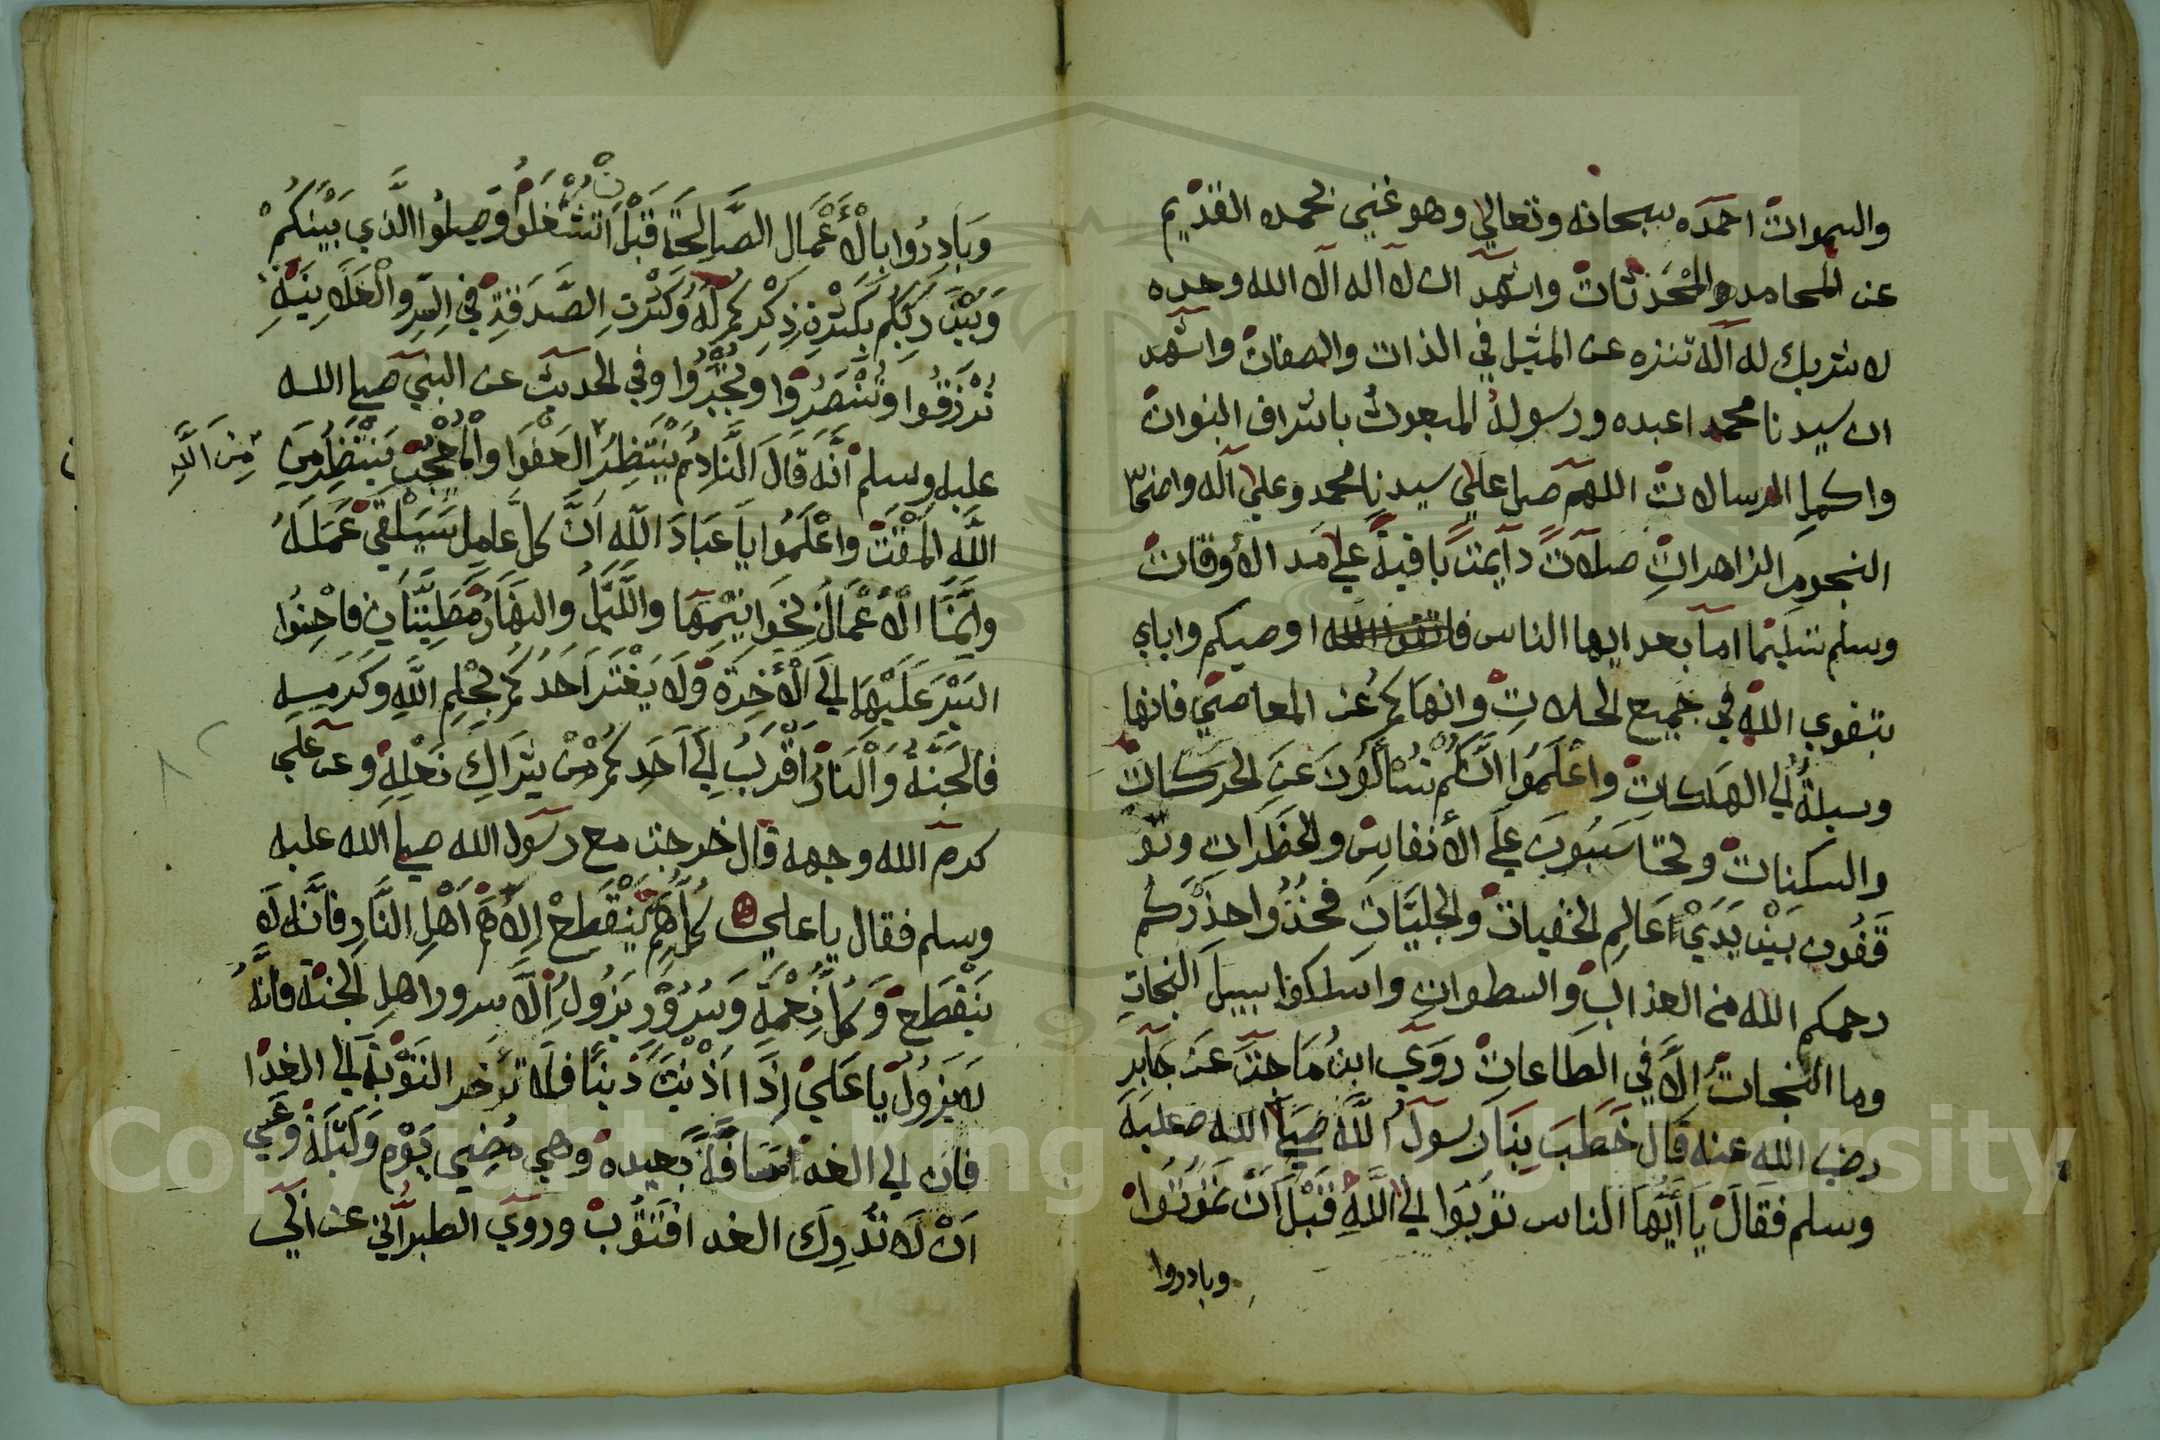 والسموات احمده سبحانه وتعالي وهو غني بحمده القديم
عن المحامد والمحدثات واشهد ان لا اله الا الله وحده
لا شريك له اله تنزه عن المثيل في الذات والصفات واشهد
ان سيدنا محمدا عبده ورسوله المبعوث باشراف النبوات
واكمل الرسالات اللهم صل علي سيدنا محمد وعلي اله واصحابه
النجوم الزاهرات صلاتً دايمتً باقيةً علي مد الأوقات
وسلم تسليما اما بعد ايها الناس فاتقوا الله اوصيكم واياي
بتقوي الله في جميع الحالات وانهاكم عن المعاصي فانها
وسيلةُ الي الهلكات واعْلَمُوا انَّكُم تسْألُونَ عَنِ الحركات
والسكنات وتحاسَبُونَ عَلَي الأنفاس والخطَرات وتو
قَفُون بَيْن يَدَيْ عَالمِ الخفيات والجليَّات فخُذُوا حذرَكُم
رحمكم الله من العذاب والسطوات واسلكوا سبيل النجات
وما النجاتُ الاَّ في الطاعات رَوَي ابنُ مَاجتَ عَن جَابر
رضي الله عنه قال خَطَبَ بِنَا رسولُ اللَّه صلي الله عليه
وسلم فقالَ يَا أيُّهَا الناس توبُوا الي اللَّهِ قَبْلَ اَنْ تمُوتُوا
وبادروا
وَبَادِرُوا بِالْأَعْمَال الصَّالِحَةِ قَبْلَ اَنْ تُشْغَلُوا وَصِلُوا الَّذي بَيْنَكُمْ
وَبَيْنَ رَبِّكُم بكَثْرَةِ ذِكْرِكُمْ لَهُ وَكَثْرتِ الصَّدَقَةِ في السِّرِّ والْعَلَانِيَةِ
تُرْزَقُوا وَتُنْصَرُوا وَتُجْبَرُوا وفي الحديث عن النبي صلي الله
عليه وسلم أنَّه قَالَ النَّادِمُ يَنْتَظِرُ العَفْوَا والْمُعْجِبُ يَنْتَظِرُ مِنَ
مِنَ اللَّهِ
اللَّهِ المَقْتَ وَاعْلَمُوا يَا عِبَادَ اللَّه اَنَّ كلَّ عَامِلٍ سَيَلْقَي عَمَلَهُ
وانَّمَا الْأعْمَالُ بِخَوَاتِيْمِهَا واللَّيْلُ والنَّهَارُ مَطِيَّتَانِ فاحْسِنُوا
السَّيْرَ عَلَيْهِمَا إلَي الْأَخِرَة وَلَا يَغْتَرَّ اَحَدُكُمْ بِحِلْمِ اللَّهِ وَكَرَمِهِ
فالجَنَّةُ وَالْنَارُ اَقْرَبُ إلَي اَحَدِكُمْ مِنْ شِرَاكِ نَعْلِهِ وعن علي
كرم الله وجهه قال خرجت مع رسول الله صلي الله عليه
وسلم فقال يا علي كُلُّ هَمٍّ يَنْقَطِعُ الا هَمَّ اَهْلِ النَّارِ فَانَّه لَا
يَنْقَطِعُ وَكُلُّ نِعْمَةٍ وَسُرُوْرٍ يَزُولُ اِلَّا سرور اهلِ الجنة فانَّهُ
لَا يَزُولُ يا عَلي اِذَا اَذْنَبْتَ ذنبًا فلا تؤخر التَوْبَةَ الي الغدا
فان الي الغد مَسَافَةً بَعيده وهي مُضِي يَوْمٍ وَلَيْلَة وَعَسَي
اَنْ لَا تُدْرِكَ الغد افَتَتُوبْ وروي الطبراني عن ابي
Copyright © King Saud University